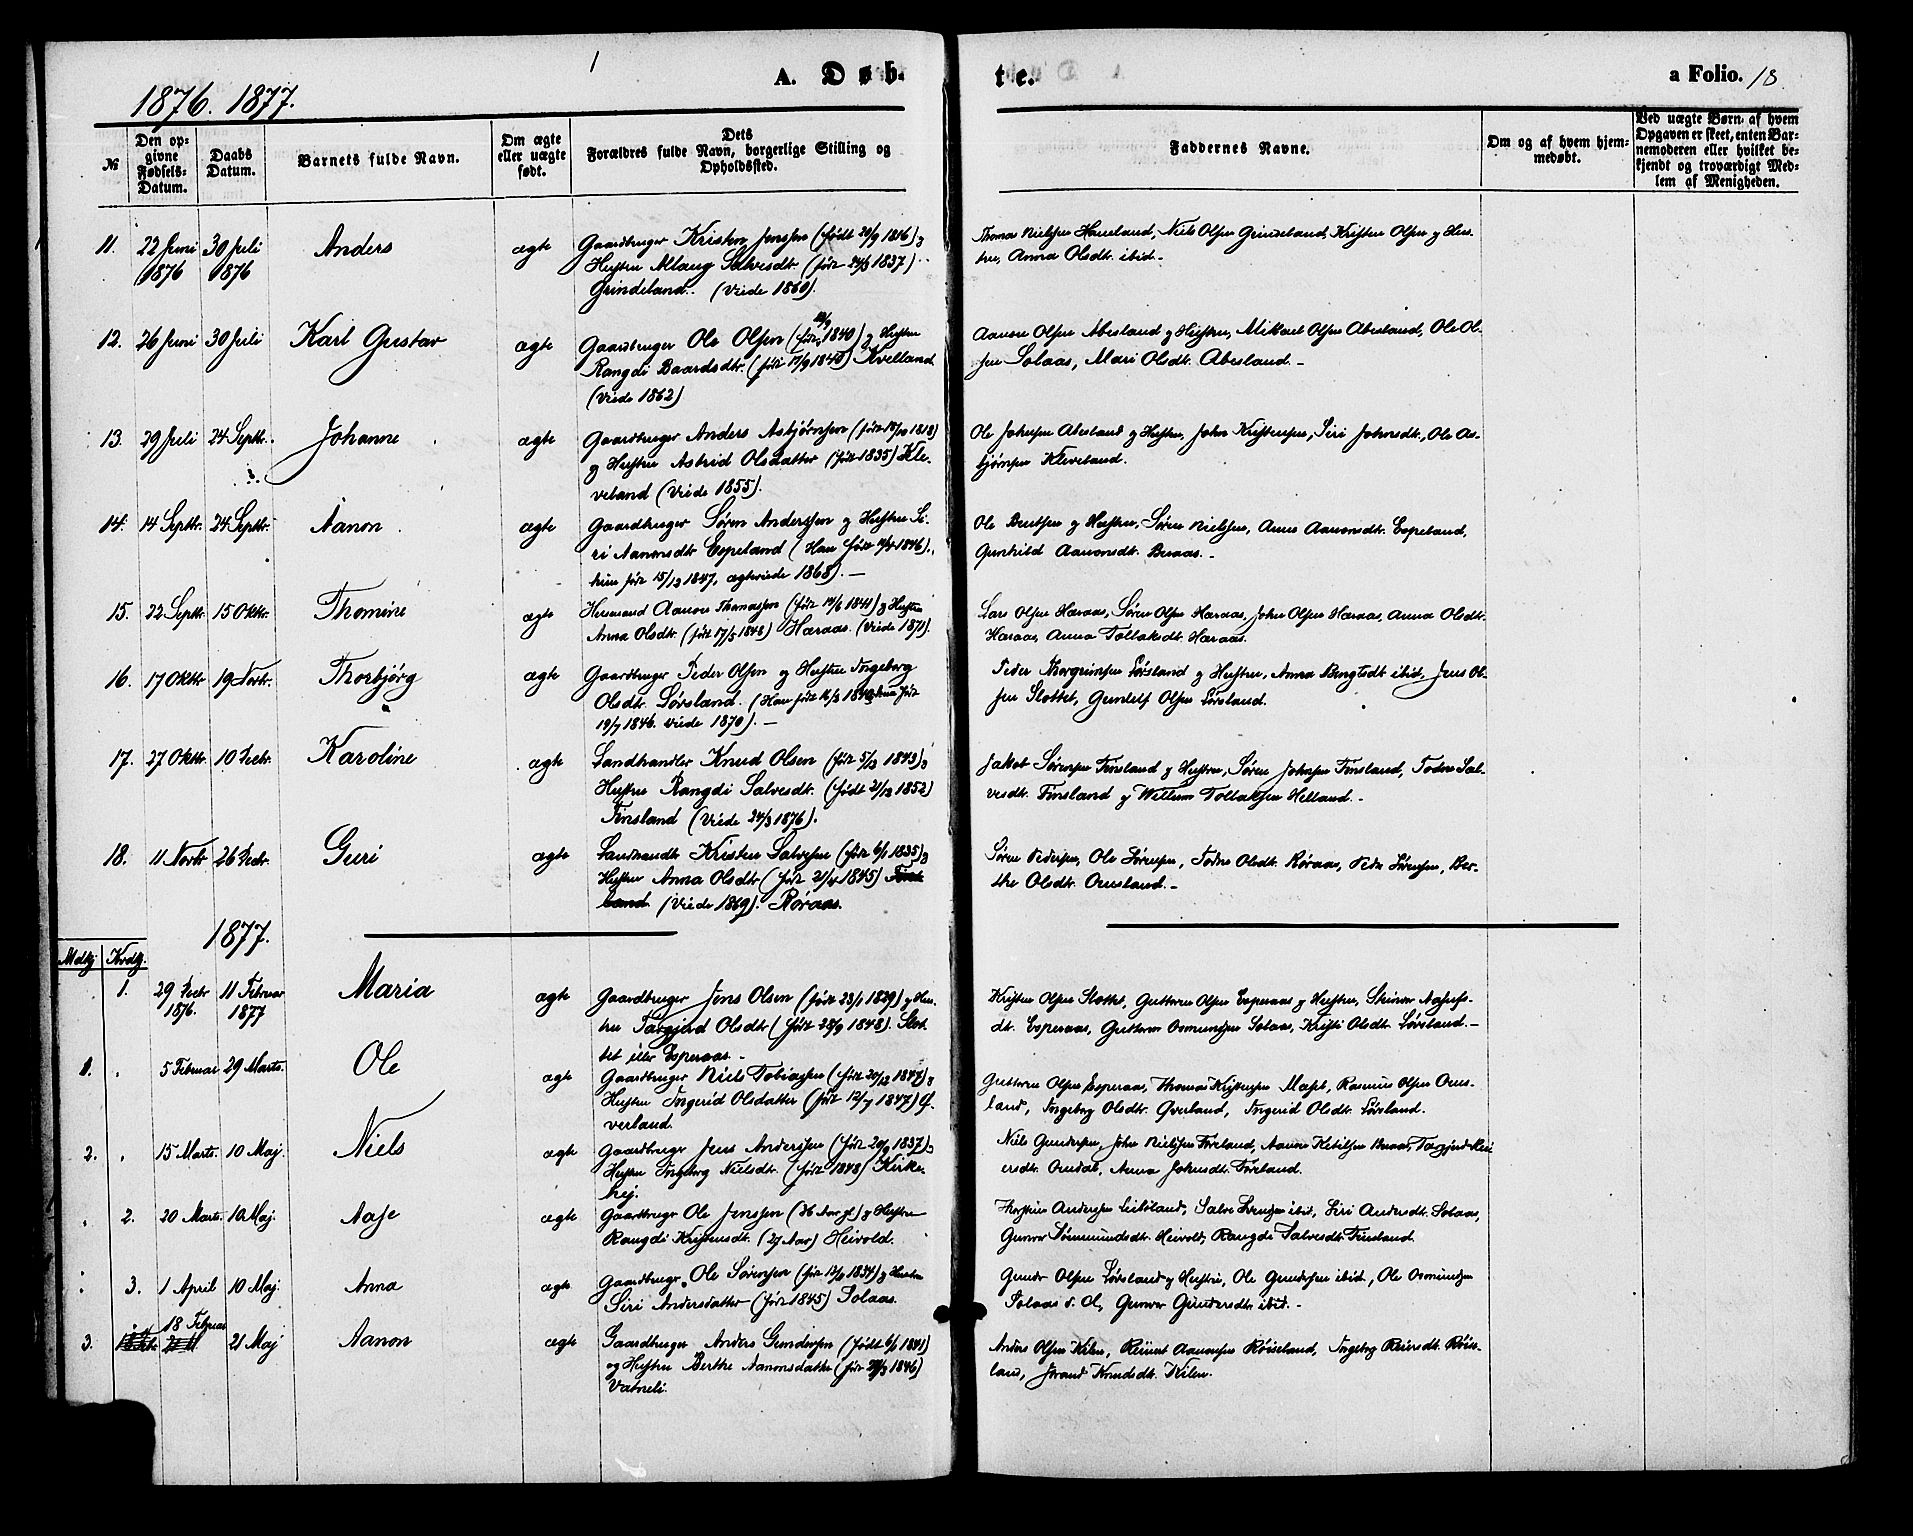 1876. 1877.
A. Døb-
te.
a Folio. 18.
№
Den op-
givne
Fødsels-
Datum.
Daabs
Datum.
Barnets fulde Navn.
Om ægte
eller uægte
født.
Dets
Forældres fulde Navn, borgerlige Stilling og
Opholdssted.
Faddernes Navne.
Om og af hvem hjem-
medøbt.
Ved uægte Børn: af hvem
Opgaven er skeet, enten Bar-
nemoderen eller hvilket be-
kjendt og troværdigt Med-
lem af Menigheden.
11. 22 Juni 30 Juli Anders ægte Gaardbruger Kristen Jenssen (født 29/9 1816) og
1876 1876 Hustru Aslaug Salvesdtr. (født 24/3 1837)
Grindeland. (Viede 1860).
Thomas Nielsen Honeland, Niels Olsen Grindeland, Kristen Olsen og Hus-
tru, Anna Olsdtr. ibid.-
12. 26 Juni 30 Juli Karl Gustav ægte Gaardbruger Ole Olsen (født 1840) og Hustru
Rangdi Baardsdtr. (født 17/9 1840) Kvelland.
(Viede 1862)
Aanon Olsen Abesland og Hustru, Mikael Olsen Abesland, Ole Ol-
sen Solaas, Mari Olsdt. Abesland.-
13. 29 Juli 24 Septr. Johanne ægte Gaardbruger Anders Asbjørnsen (født 1818)
og Hustru Astrid Olsdatter (født 1835) Kle-
veland (Viede 1855).
Ole Johnsen Abesland og Hustru, John Kristensen, Siri Johnsdt., Ole As-
bjørnsen Kleveland.
14. 14 Septr. 24 Septr. Aanon. ægte Gaardbruger Søren Anderssen og Hustru Si-
ri Aanonsdtr Espeland (Han født 1846),
hun født 15/12 1847, ægteviede 1868).-
Ole Bentsen og Hustru, Søren Nielsen, Anne Aanonsdt. Espeland,
Gunhild Aanonsdt. Buaas.-
15. 22 Septr. 15 Oktr. Thomine ægte Huusmand Aanon Thomassen (født 1841) og Hustru
Anna Olsdtr. (født 17/5 1848) Haraas. (Viede 1871).
Lars Olsen Haraas, Søren Olsen Haraas, John Olsen Haraas, Anna Olsdt.
Haraas, Anna Tollaksdt. Haraas.
16. 17 Oktr 19 Novbr. Thorbjørg ægte Gaardbruger Peder Olsen og Hustru Ingeborg
Olsdtr. Lørsland. (Han født 1840 hun født
19/7 1846. Viede 1870).-
Peder Thorgrimsen Lørsland og Hustru, Anna Bengtsdt ibid, Jens Ol-
sen Slottet, Gunleif Olsen Lørsland.
17. 27 Oktr. 10 Decbr. Karoline ægte Landhandler Knud Olsen (født 5/3 1843) og
Hustru Rangdi Salvesdt. (født 21/12 1852)
Finsland (Viede 24/3 1876).
Jakob Sørensen Finsland og Hustru, Søren Johnsen Finsland, Todne Sal-
vesdt. Finsland og Willum Tollaksen Helland.-
18. 11 Novbr 26 Decbr. Guri ægte Landhandlr Kristen Salvesen (født 6/1 1835) og
Hustru Anna Olsdtr (født 21/4 1845)
(Viede 1869). Røraas.
Søren Pedersen, Ole Sørensen, Todne Olsdt. Røraas, Peder Sørensen, Ber-
the Olsdt. Omsland.-
1877.
Mdkj Kvdkj.
1. 29 Decbr 11 Februar Maria ægte Gaardbruger Jens Olsen (født 23/1 1829) og Hus-
1876. 1877 tru Targjerd Olsdt (født 28/9 1848). Slot-
tet eller Esperaas.-
Kristen Olsen Slottet, Guttorm Olsen Esperaas og Hustru,
dt. Esperaas, Guttorm Osmundsen Solaas, Kristi Olsdt. Lørsland.-
1. 5 Februar 29 Marts. Ole ægte Gaardbruger Niels Tobiassen (født 20/12 1847) og
Hustru Ingerid Olsdatter (født 12/7 1847) G-
verland.
Guttorm Olsen Esperaas, Thomas Kristensen Røraas Rasmus Olsen Oms-
land, Ingeborg Olsdt. Gverland, Ingerid Olsdt. Lørsland.
2. 15 Marts. 10 Maj. Niels ægte Gaardbruger Jens Anderssen (født 1837) og
Hustru Ingeborg Nielsdt. (født 1848) Kirke-
hej.
Niels Gundersen, John Nielsen Foreland, Aanon Ketilsen Buaas, Targjerd
Omdal, Anna Johnsdt. Foreland.
2. 20 Marts. 10 Maj. Aase ægte Gaardbruger Ole Jenssen (26 Aar gl) og Hustru
Rangdi Kristensdt. (27 Aar) Heivold.
Thorstein Anderssen ibid, Siri Andersdt. Solaas,
Gunvor Heivold, Rangdi Salvesdt. Finsland.
3. 1 April 10 Maj. Anna ægte Gaardbrugr. Ole Sørensen (født 1834) og Hustru
Siri Andersdatter (født 1845) Solaas.
Olsen Lørsland og Hustru, Ole Gundersen ibid, Ole Osmundsen
Solaas, Gunvor Gundersdtr ibid.-
3. 18 Februar 21 Maj Aanon ægte Gaardbruger Anders Gundersen (født 6/1 1841)
og Hustru Berthe Aanonsdatter (født 1846)
Vatneli.
Anders Olsen Kilen, Reinert Aanonsen Røiseland, Ingeborg Reiersdt. Røise-
land, Knudsdt. Kilen.